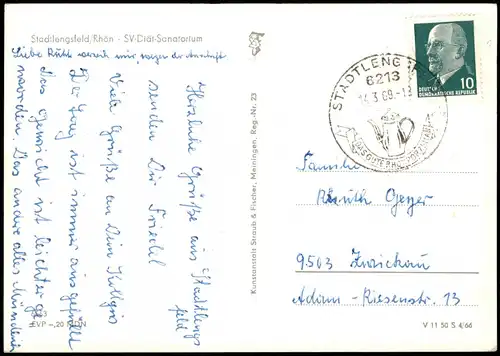 Stadtlengsfeld/Rhön - SV-Diät-Sanatorium
Liebe Ruth verzeih mir, wegen der Anschrift
Herzliche Grüße aus Stadtlengs
feld
senden Dir Friedel
Viele Grüße an Dein Kollegin
Der Tag ist immer ausgefüllt
Das Gewicht ist leichter ge
worden. Das andere alles mündlich
EVP -,20 MDN
Kunstanstalt Straub & Fischer, Meiningen, Reg.-Nr. 23
STADTLENG
6213
3.69.-1
10
DEUTSCHE
DEMOKRATISCHE REPUBLIK
Familie
Ruth Geyer
9503 Zwickau
Adam-Riesenstr. 13
V 11 50 S 4/66